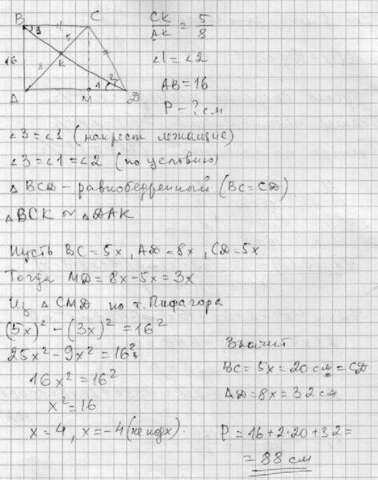 B C
3
5
16 K
8
1 2
A M D
CK/AK = 5/8
∠1 = ∠2
AB = 16
P - ? см
∠3 = ∠1 (накрест лежащие)
∠3 = ∠1 = ∠2 (по условию)
△BCD - равнобедренный (BC = CD)
△BCK ∾ △DAK
Пусть BC = 5x, AD = 8x, CD = 5x
Тогда MD = 8x - 5x = 3x
Из △CMD по т. Пифагора
(5x)² - (3x)² = 16²
25x² - 9x² = 16²
16x² = 16²
x² = 16
x = 4, x = -4 (не подх).
Значит
BC = 5x = 20 см = CD
AD = 8x = 32 см
P = 16 + 2·20 + 32 =
= 88 см